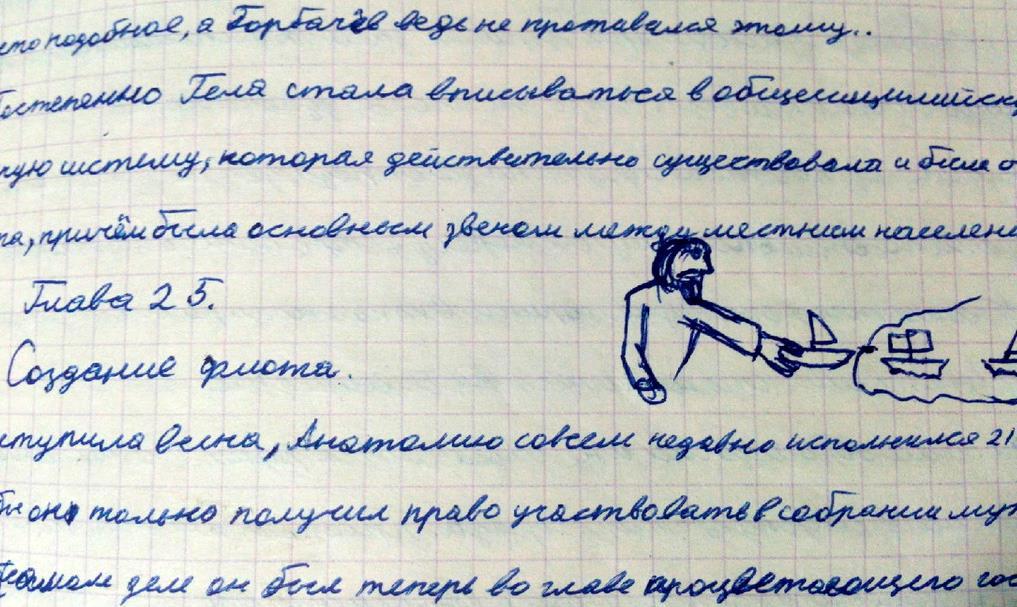 подобное, а Горбачёв ведь не противался этому..
Постепенно Гела стала вписываться в общесицилийск
ную систему, которая действительно существовала и была о
па, причём была основным звеном между местным населени
Глава 25.
Создание флота.
ступила весна, Анатолию совсем недавно исполнился 21
бы он только получил право участвовать в собрании муж
самом деле он был теперь во главе процветающего гос